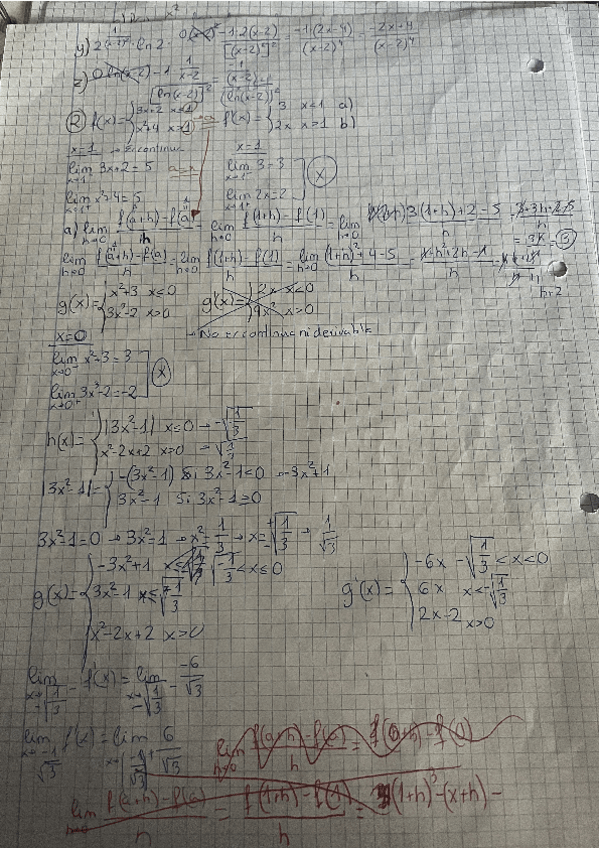 y) 2^(1/(x-2)²) · ln2 · (0(x-2)² - 1·2(x-2))/[(x-2)²]² = (-1·(2x-4))/(x-2)⁴ = (-2x+4)/(x-2)⁴
z) (0·ln(x-2) - 1·1/(x-2))/[ln(x-2)]² = (-1/(x-2))/(ln(x-2))²
② f(x)= { 3x+2 x≤1 f'(x)= { 3 x<1 a)
x²+4 x>1 2x x>1 b)
x=1 → Es continua x=1
lim x→1⁻ 3x+2=5 a=x lim x→1⁻ 3=3
lim x→1⁺ x²+4=5 lim x→1⁺ 2x=2 (x)
a) lim h→0 (f(a+h)-f(a))/h = lim h→0 (f(1+h)-f(1))/h = lim h→0 (3(1+h)+2-5)/h = (3+3h+2-5)/h
= 3h/h = ③
lim h→0 (f(a+h)-f(a))/h = lim h→0 (f(1+h)-f(1))/h = lim h→0 ((1+h)²+4-5)/h = (1+h²+2h-1)/h =
h+2
g(x)= { x²+3 x≤0 g'(x)= { 2x x<0
3x²-2 x>0 x>0
x=0 → No es continua ni derivable
lim x→0⁻ x²+3=3
lim x→0⁺ 3x²-2=-2 (x)
h(x)= { |3x²-1| x≤0 → -√(1/3)
x²-2x+2 x>0 → √(1/3)
|3x²-1|= { -(3x²-1) Si 3x²-1<0 → -3x²+1
3x²-1 Si 3x²-1≥0
3x²-1=0 → 3x²=1 → x²=1/3 → x=±√(1/3) → 1/√3
g(x)= { -3x²+1 -√(1/3)<x≤0 g'(x)= { -6x -√(1/3)<x<0
3x²-1 x≤-√(1/3) 6x x<-√(1/3)
x²-2x+2 x>0 2x-2 x>0
lim f'(x)= lim -6/√3
lim f'(x)= lim 6/√3
lim h→0 (f(a+h)-f(a))/h = f(0+h)-f(0)
lim h→0 (f(a+h)-f(a))/h = (f(1+h)-f(1))/h = (1+h)³-(x+h)-